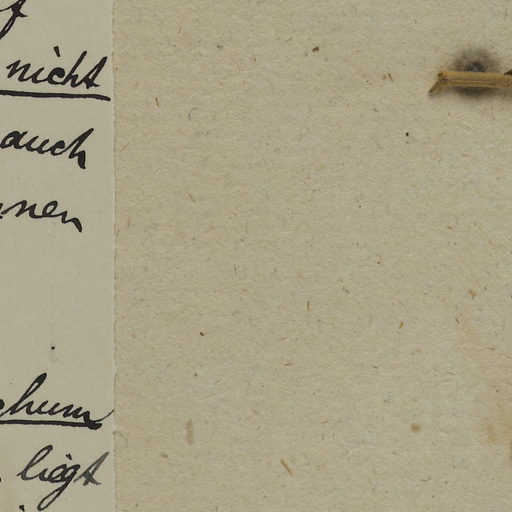 nicht
auch
nen
chum
liegt